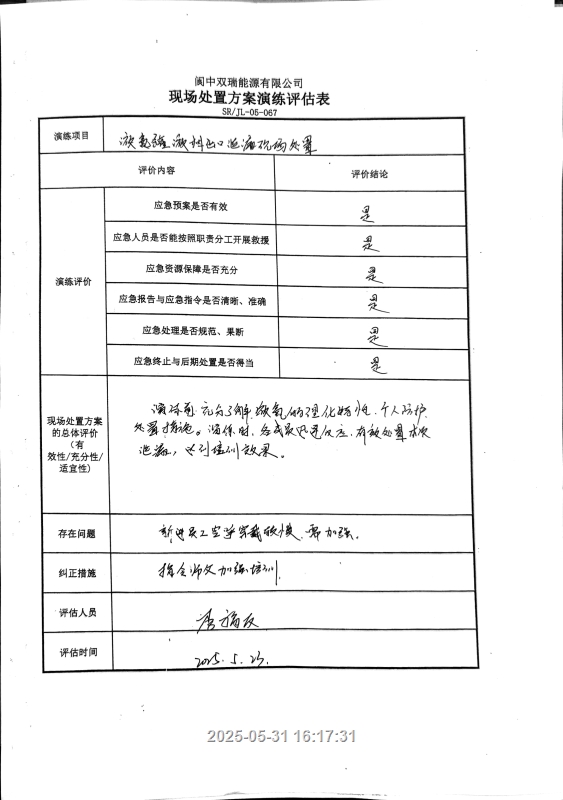 阆中双瑞能源有限公司
现场处置方案演练评估表
SR/JL-05-067
演练项目
液氨罐液相出口泄漏现场处置
评价内容 评价结论
演练评价
应急预案是否有效 是
应急人员是否能按照职责分工开展救援 是
应急资源保障是否充分 是
应急报告与应急指令是否清晰、准确 是
应急处理是否规范、果断 是
应急终止与后期处置是否得当 是
现场处置方案
的总体评价
(有
效性/充分性/
适宜性)
演练前充分了解液氨的理化特性、个人防护、
处置措施。演练时,各成员迅速反应,有效处置本次
泄漏,达到培训效果。
存在问题 新进员工空呼穿戴较慢,需加强。
纠正措施 指令师父加强培训
评估人员
评估时间 2025.5.23.
2025-05-31 16:17:31